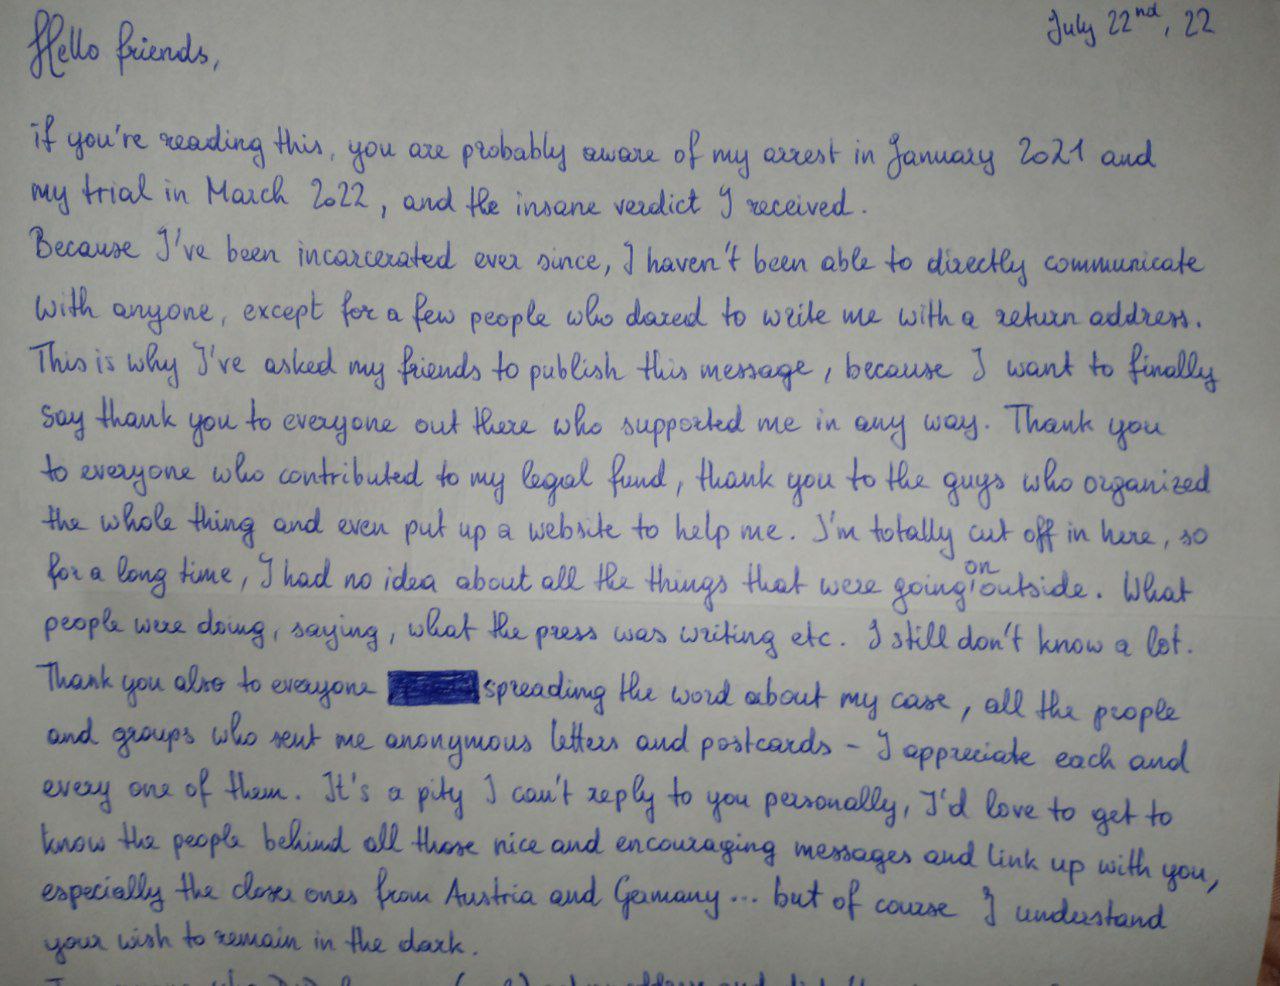 July 22nd, 22
Hello friends,
if you're reading this, you are probably aware of my arrest in January 2021 and
my trial in March 2022, and the insane verdict I received.
Because I've been incarcerated ever since, I haven't been able to directly communicate
with anyone, except for a few people who dared to write me with a return address.
This is why I've asked my friends to publish this message, because I want to finally
say thank you to everyone out there who supported me in any way. Thank you
to everyone who contributed to my legal fund, thank you to the guys who organized
the whole thing and even put up a website to help me. I'm totally cut off in here, so
for a long time, I had no idea about all the things that were going on outside. What
people were doing, saying, what the press was writing etc. I still don't know a lot.
Thank you also to everyone spreading the word about my case, all the people
and groups who sent me anonymous letters and postcards – I appreciate each and
every one of them. It's a pity I can't reply to you personally, I'd love to get to
know the people behind all those nice and encouraging messages and link up with you,
especially the closer ones from Austria and Gemany... but of course I understand
your wish to remain in the dark.